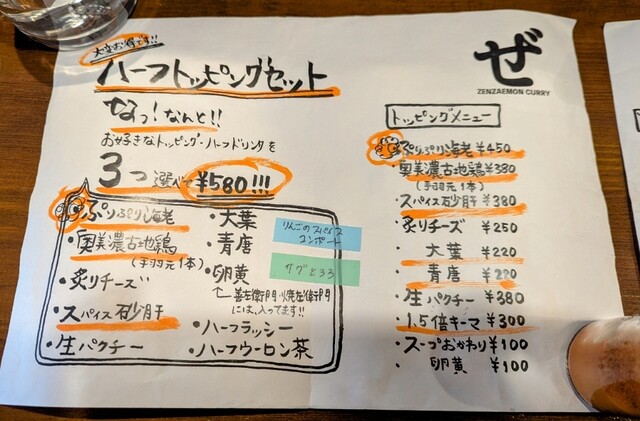 大変お得です!!
ハーフトッピングセット
なっ!なんと!!
お好きなトッピング・ハーフドリンクを
3つ選べて¥580!!!
・ぷりぷり海老
・奥美濃古地鶏
(手羽元1本)
・炙りチーズ
・スパイス砂肝
・生パクチー
・大葉
・青唐
・卵黄
善左衛門・焼左衛門
には、入ってます!!
・ハーフラッシー
・ハーフウーロン茶
りんごのスパイス
コンポート
サグとろろ
ぜ
ZENZAEMON CURRY
トッピングメニュー
・ぷりぷり海老 ¥450
・奥美濃古地鶏 ¥380
(手羽元1本)
・スパイス砂肝 ¥380
・炙りチーズ ¥250
・大葉 ¥220
・青唐 ¥220
・生パクチー ¥380
・1.5倍キーマ ¥300
・スープおかわり ¥100
・卵黄 ¥100